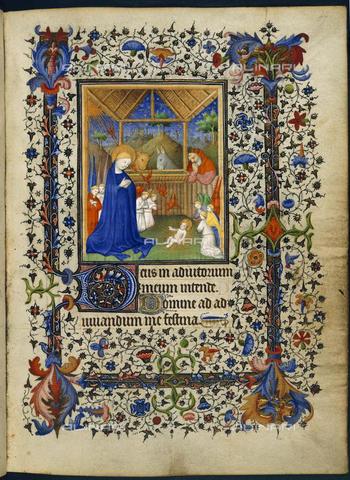 Deus in adiutorium
meum intende.
Domine ad ad
iuuandum me festina.
ALINARI
ALINARI
ALINARI
ALINARI